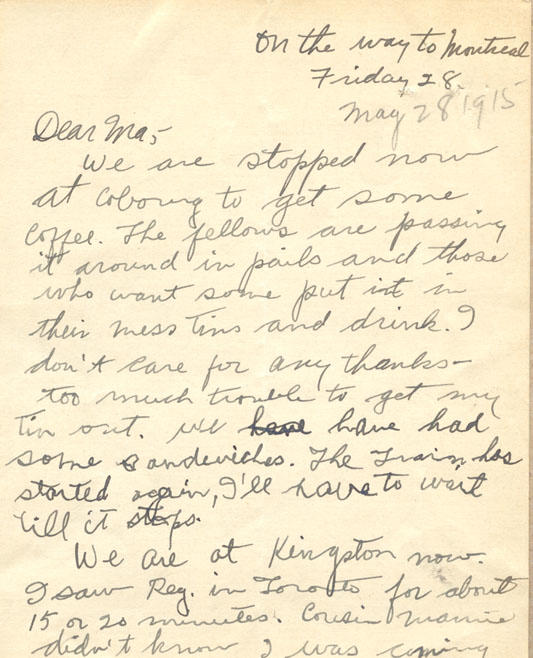 On the way to Montreal
Friday 28.
May 28 1915
Dear Ma,-
We are stopped now
at Cobourg to get some
coffee. The fellows are passing
it around in pails and those
who want some put it in
their mess tins and drink. I
don't care for any thanks-
too much trouble to get my
tin out. We have have had
some sandwiches. The Train has
started again, I'll have to wait
till it stops.
We are at Kingston now.
I saw Reg. in Toronto for about
15 or 20 minutes. Cousin Mamie
didn't know I was coming